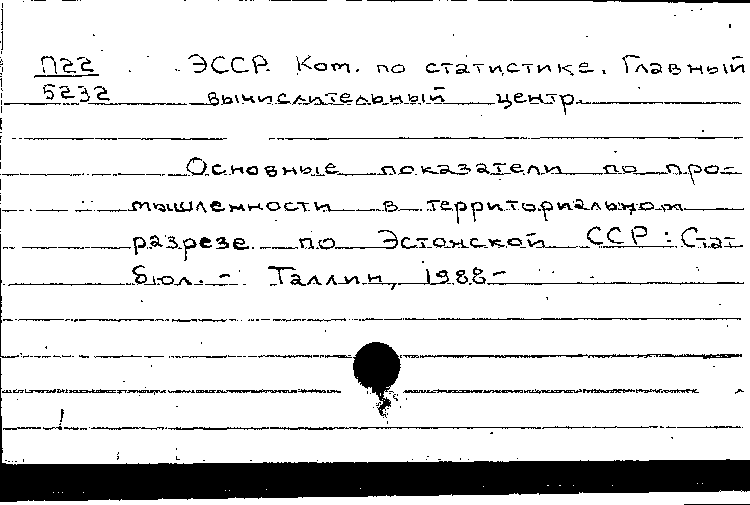 П22 ЭССР. Ком. по статистике. Главный
5232 вычислительный центр.
Основные показатели по про-
мышленности в территориальном
разрезе по Эстонской ССР : Стат.
бюл. - Таллин, 1988-